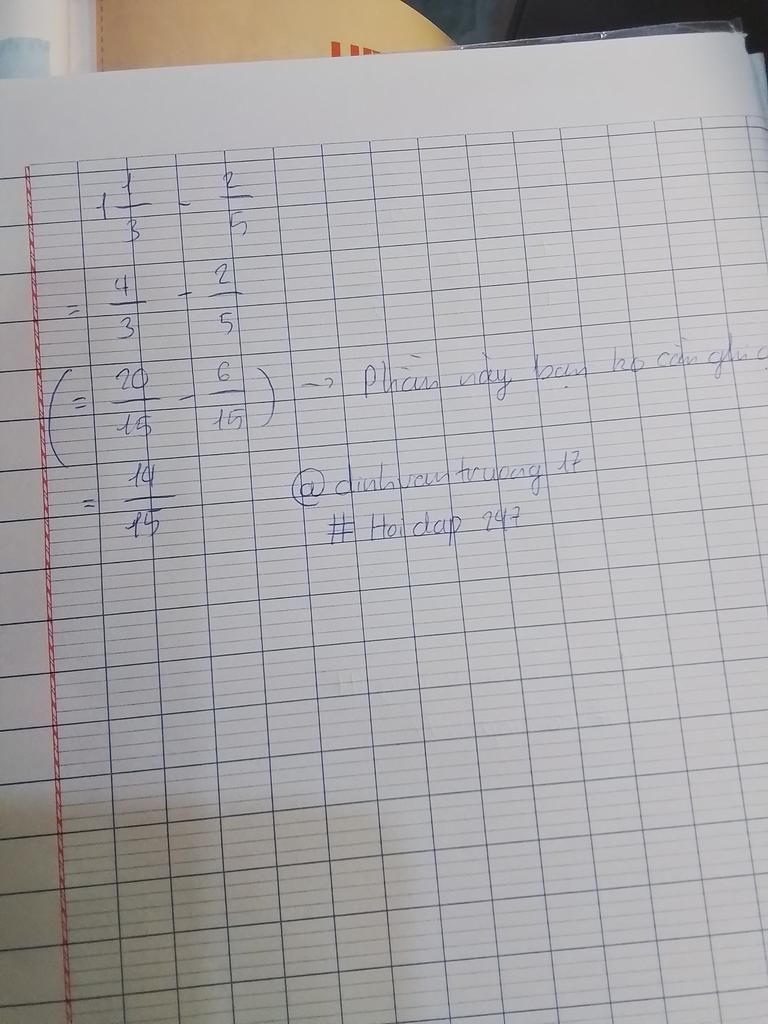 1 1/3 - 2/5
= 4/3 - 2/5
(= 20/15 - 6/15) -> Phần này bạn ko cần ghi
= 14/15 @dinhvantruong17
# Hoidap 247